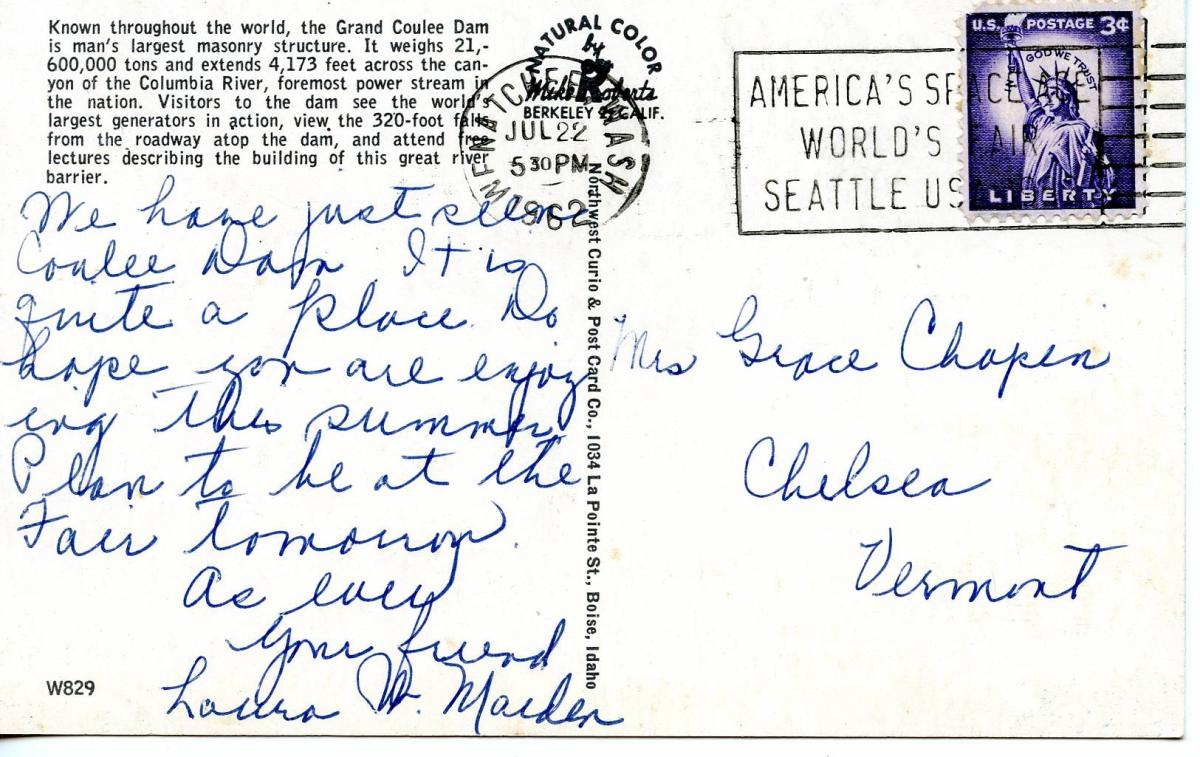 Known throughout the world, the Grand Coulee Dam
is man's largest masonry structure. It weighs 21,-
600,000 tons and extends 4,173 feet across the can-
yon of the Columbia River, foremost power stream in
the nation. Visitors to the dam see the world's
largest generators in action, view the 320-foot falls
from the roadway atop the dam, and attend free
lectures describing the building of this great river
barrier.
We have just seen
Coulee Dam It is
quite a place. Do
hope you are enjoy
ing this summer
Plan to be at the
Fair tomorrow.
As ever
Your friend
Laura W. Marden
W829
NATURAL COLOR
by
Mike Roberts
BERKELEY 2, CALIF.
WENATCHEE WASH
JUL 22
5 30 PM
1962
Northwest Curio & Post Card Co., 1034 La Pointe St., Boise, Idaho
AMERICA'S SPACE AGE
WORLD'S FAIR
SEATTLE USA
U.S. POSTAGE 3¢
IN GOD WE TRUST
LIBERTY
Mrs Grace Chapin
Chelsea
Vermont